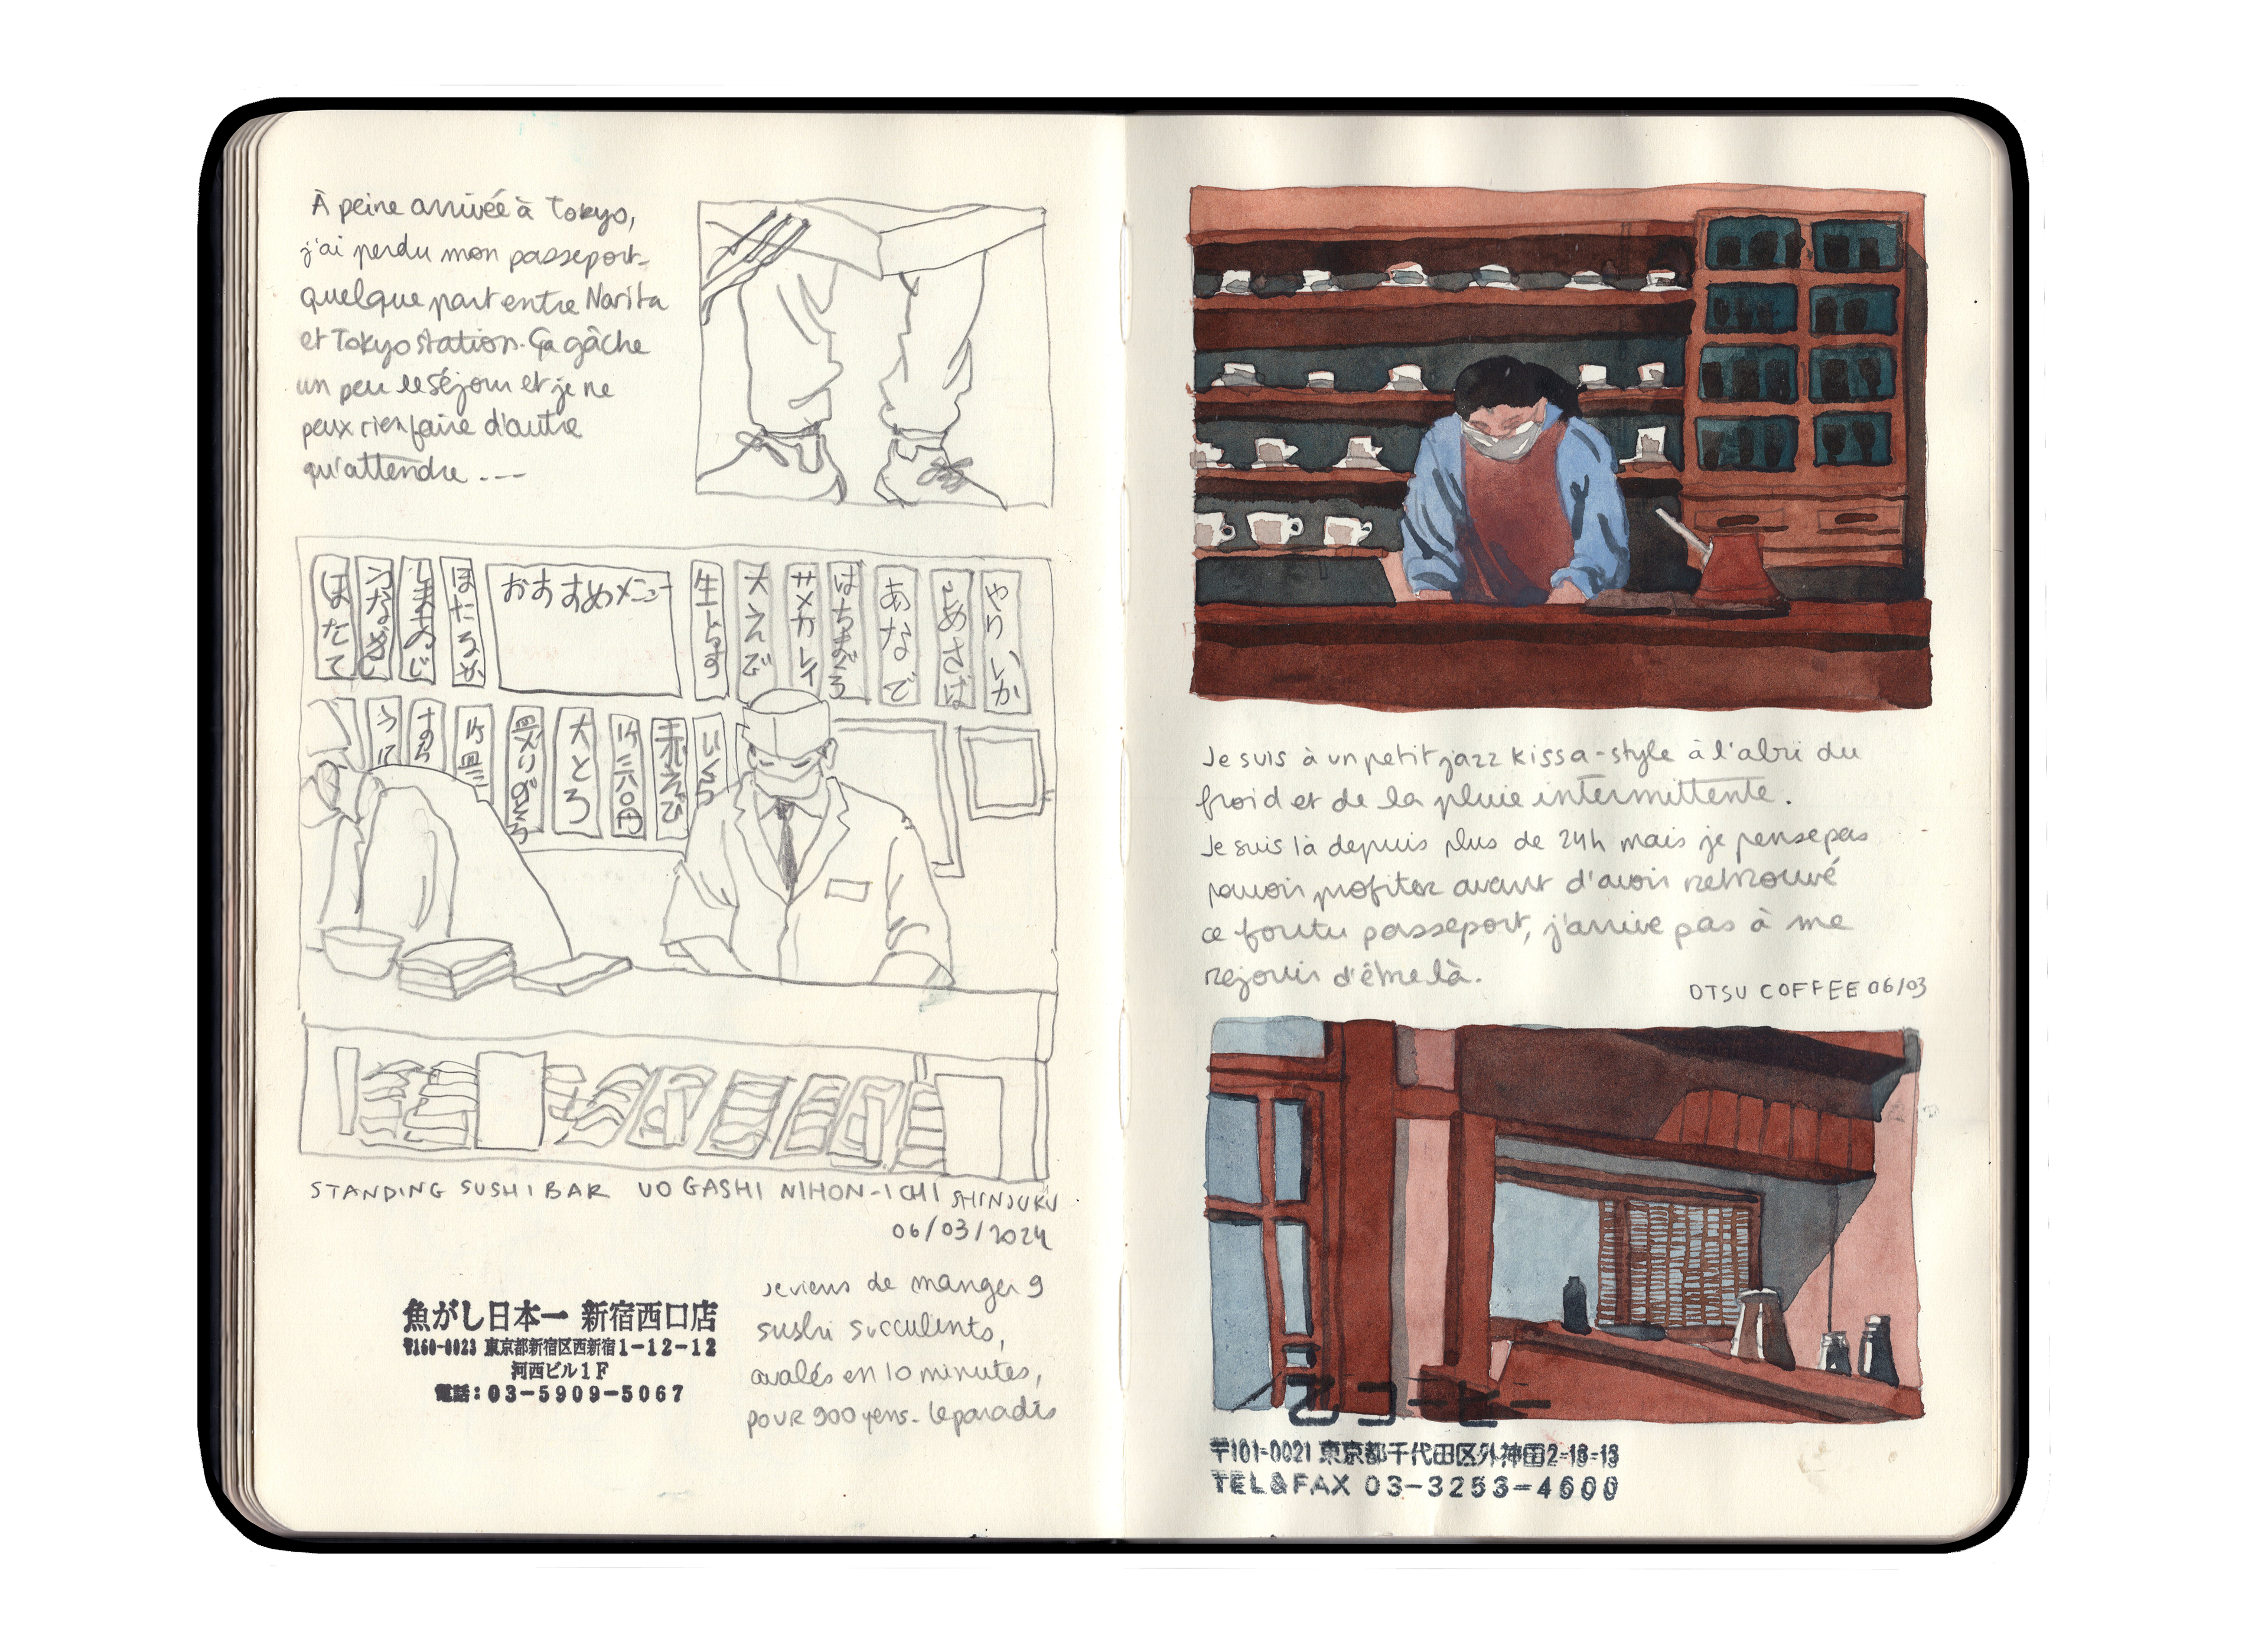 À peine arrivée à Tokyo,
j'ai perdu mon passeport
quelque part entre Narita
et Tokyo station. Ça gâche
un peu le séjour et je ne
peux rien faire d'autre
qu'attendre ...
ほたて
生あじ
ほたるいか
おすすめメニュー
生しらす
大えび
サメカレイ
はちまぐろ
あなご
しめさば
やりいか
うに
大とろ
赤えび
いくら
STANDING SUSHI BAR UOGASHI NIHON-ICHI SHINJUKU
06/03/2024
魚がし日本一 新宿西口店
〒160-0023 東京都新宿区西新宿1-12-12
河西ビル1F
電話:03-5909-5067
Je viens de manger 9
sushi succulents,
avalés en 10 minutes,
pour 900 yens. Le paradis
Je suis à un petit jazz kissa-style à l'abri du
froid et de la pluie intermittente.
Je suis là depuis plus de 24h mais je pense pas
pouvoir profiter avant d'avoir retrouvé
ce foutu passeport, j'arrive pas à me
rejouir d'être là.
OTSU COFFEE 06/03
〒101-0021 東京都千代田区外神田2-18-18
TEL&FAX 03-3253-4600